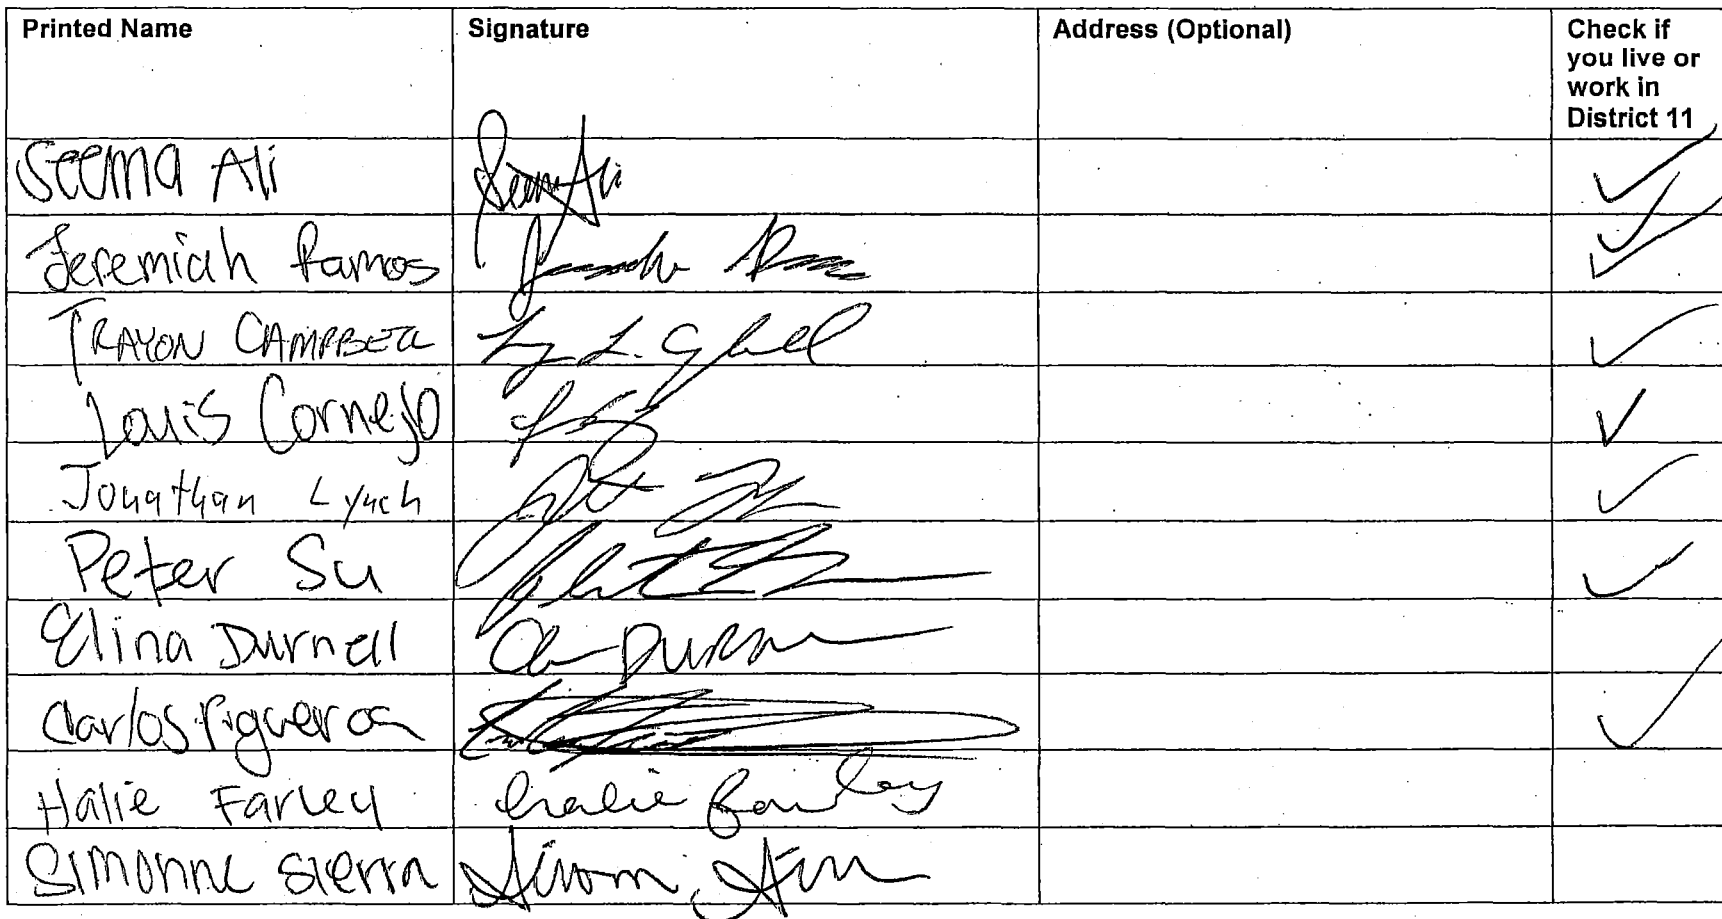 Printed Name Signature Address (Optional) Check if
you live or
work in
District 11
Seema Ali Seema Ali
Jeremiah Ramos
TRAYON CAMPBELL
Louis Cornejo
Jonathan Lynch
Peter Su
Elina Durnell
Carlos Figueroa
Halie Farley Halie Farley
Simonne Sierra